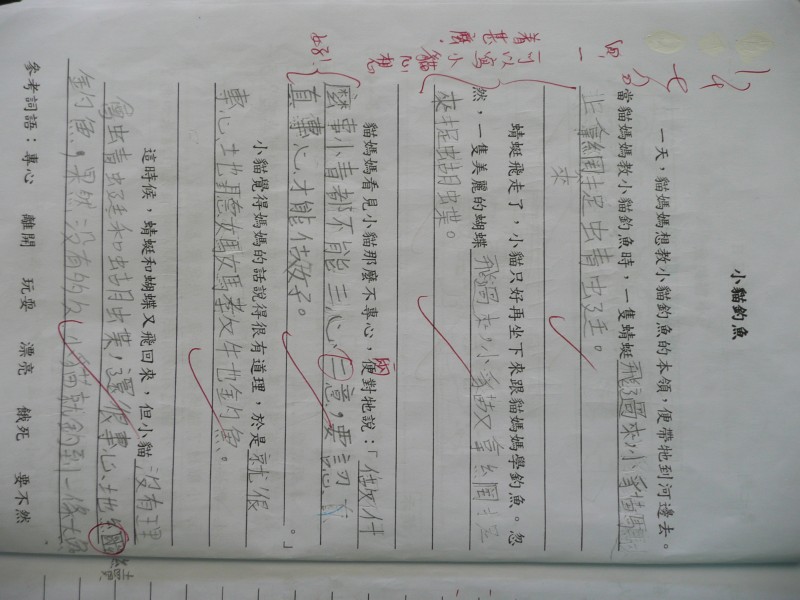 小貓釣魚
一天，貓媽媽想教小貓釣魚的本領，便帶牠到河邊去。
當貓媽媽教小貓釣魚時，一隻蜻蜓飛過來，小
上拿網捉蜻蜓。
來
蜻蜓飛走了，小貓只好再坐下來跟貓媽媽學釣魚。忽
然，一隻美麗的蝴蝶飛過來，小貓拿網
來捉蝴蝶。
貓媽媽看見小貓那麼不專心，便對牠說：「做什
麼事情都不能三心二意，要認
真專心才能做好。」
小貓覺得媽媽的話說得很有道理，於是就很
專心地聽媽媽教牠釣魚。
這時候，蜻蜓和蝴蝶又飛回來，但小貓沒有理
會蜻蜓和蝴蝶，還很專心地
釣魚，果然，沒有多久小貓就釣到一條大
參考詞語：專心 離開 玩耍 漂亮 餓死 要不然
可以寫小貓心想
着甚麼
好！